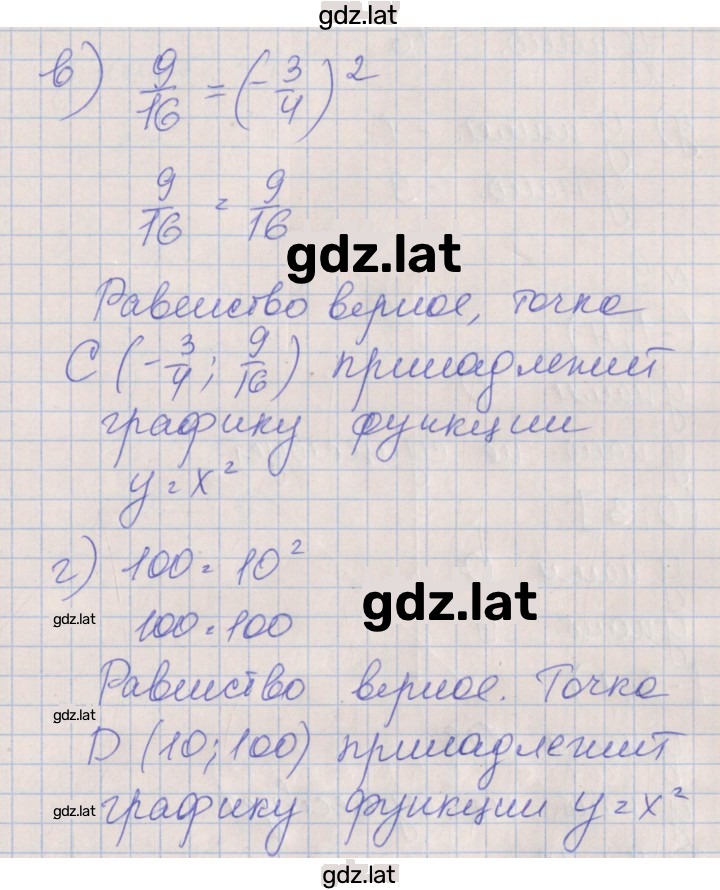 gdz.lat
в) 9/16 = (-3/4)²
9/16 = 9/16
gdz.lat
Равенство верное, точка
C (-3/4; 9/16) принадлежит
графику функции
y = x²
г) 100 = 10²
gdz.lat
gdz.lat
100 = 100
Равенство верное. Точка
gdz.lat
D (10; 100) принадлежит
gdz.lat
графику функции y = x²
gdz.lat